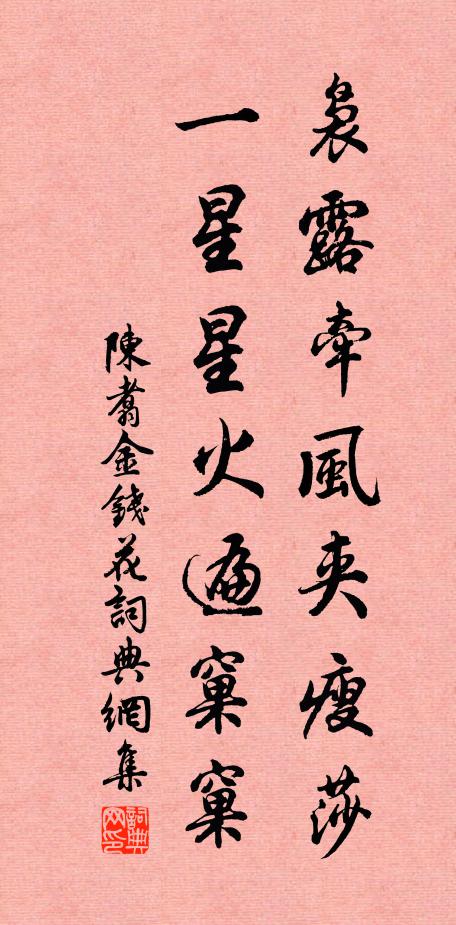 裊露牽風夾瘦莎
一星星火遍窠窠
陳翥金錢花詞典網集
詞典网印